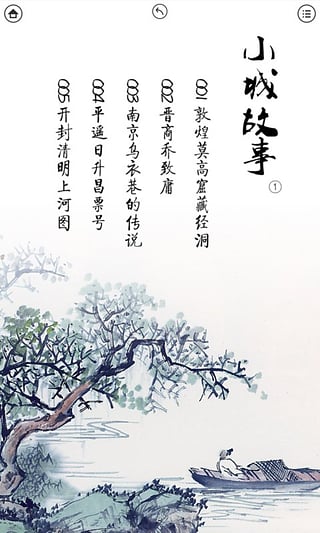 小城故事
①
001敦煌莫高窟藏经洞
002晋商乔致庸
003南京乌衣巷的传说
004平遥日升昌票号
005开封清明上河图